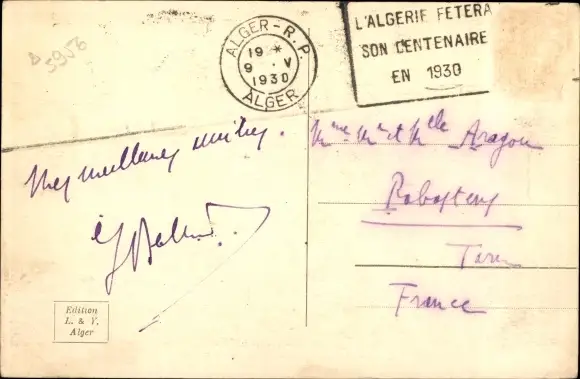 5956
ALGER-R.P.
19 *
9 . V
1930
ALGER
L'ALGERIE FETERA
SON CENTENAIRE
EN 1930
Mes meilleures amitiés.
Mme Mr et Mlle Aragon
Rabastens
Tarn
France
Edition
L. & V.
Alger